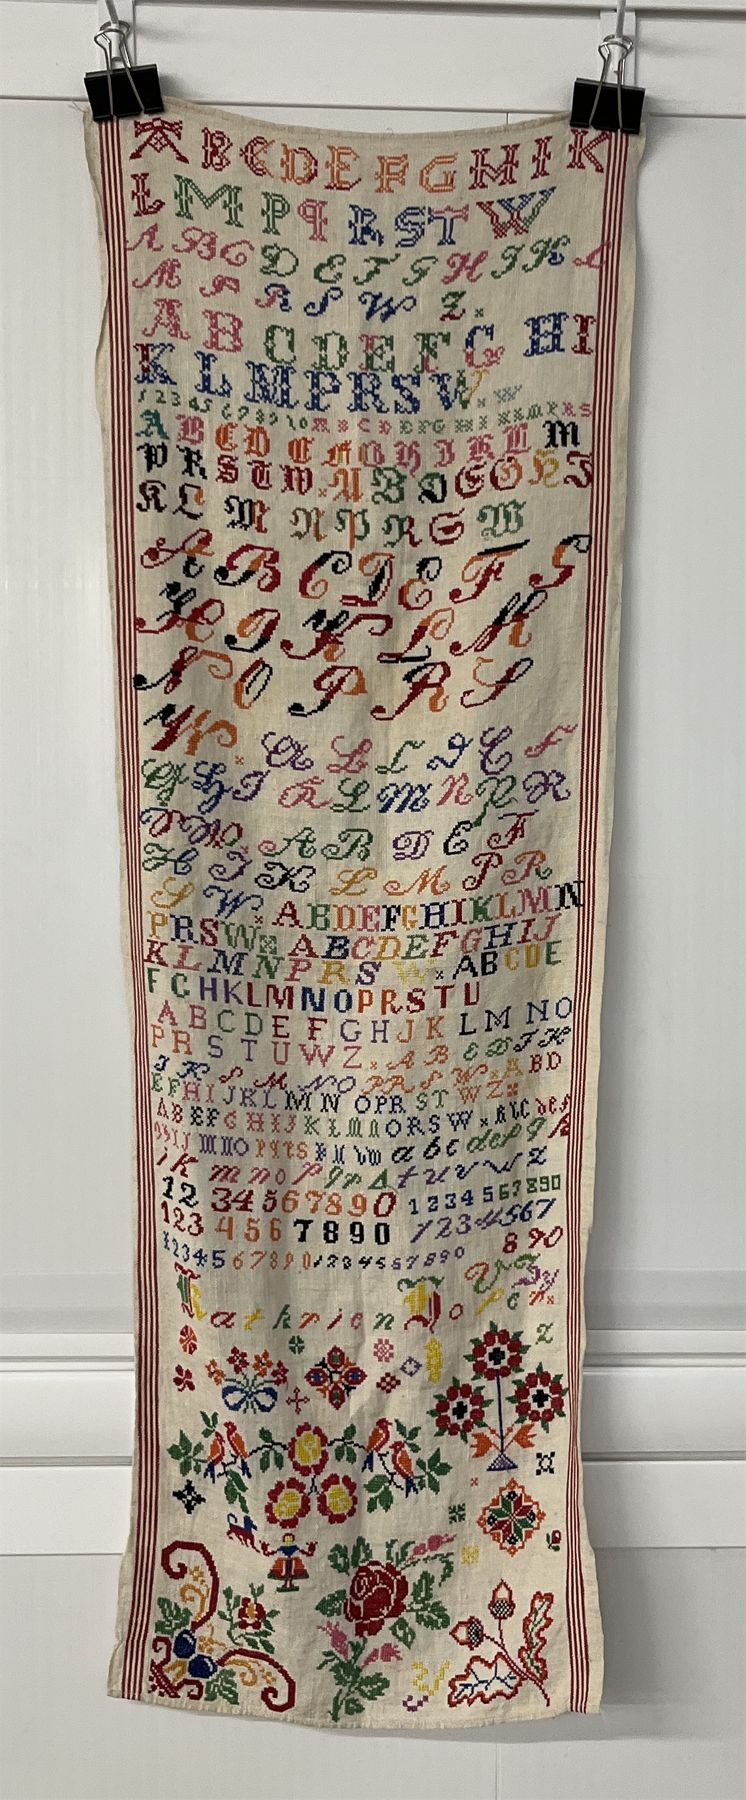 A B C D E F G H I K
L M P q R S T W
A B C D E F G H I K L
M P R S W Z x
A B C D E F G H I
K L M P R S W x W
1 2 3 4 5 6 7 8 9 10 A B C D E F G H I K L M P R S
A B C D E F G H I K L M
P R S T W x A B D E G H I
K L M N P R S W
A B C D E F G
H I K L M
N O P R S
W x A B L D E F
G H I K L M N P R
V W x A B D E F
H I K L M P R
S W x A B D E F G H I K L M N
P R S W x A B C D E F G H I J
K L M N P R S W x A B C D E
F G H K L M N O P R S T U
A B C D E F G H J K L M N O
P R S T U W Z x A B C D F H
J K S M N O P R S W x A B D
E F H I J K L M N O P R S T W Z x
A B E F G H I J K L M N O R S W x A B C D E F
a b c d e f g h
i k m n o p q r s t u v w z
1 2 3 4 5 6 7 8 9 0 1 2 3 4 5 6 7 8 9 0
1 2 3 4 5 6 7 8 9 0 1 2 3 4 5 6 7
1 2 3 4 5 6 7 8 9 0 1 2 3 4 5 6 7 8 9 0 8 9 0
Kathrien
Z